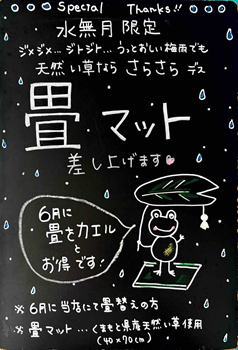 Special Thanks!!
水無月限定
ジメジメ…ジトジト…うっとおしい梅雨でも
天然い草なら さらさら デス
畳マット
差し上げます
6月に
畳をカエルと
お得です!
※6月に当店にて畳替えの方
※畳マット…くまもと県産天然い草使用
(40×70cm)